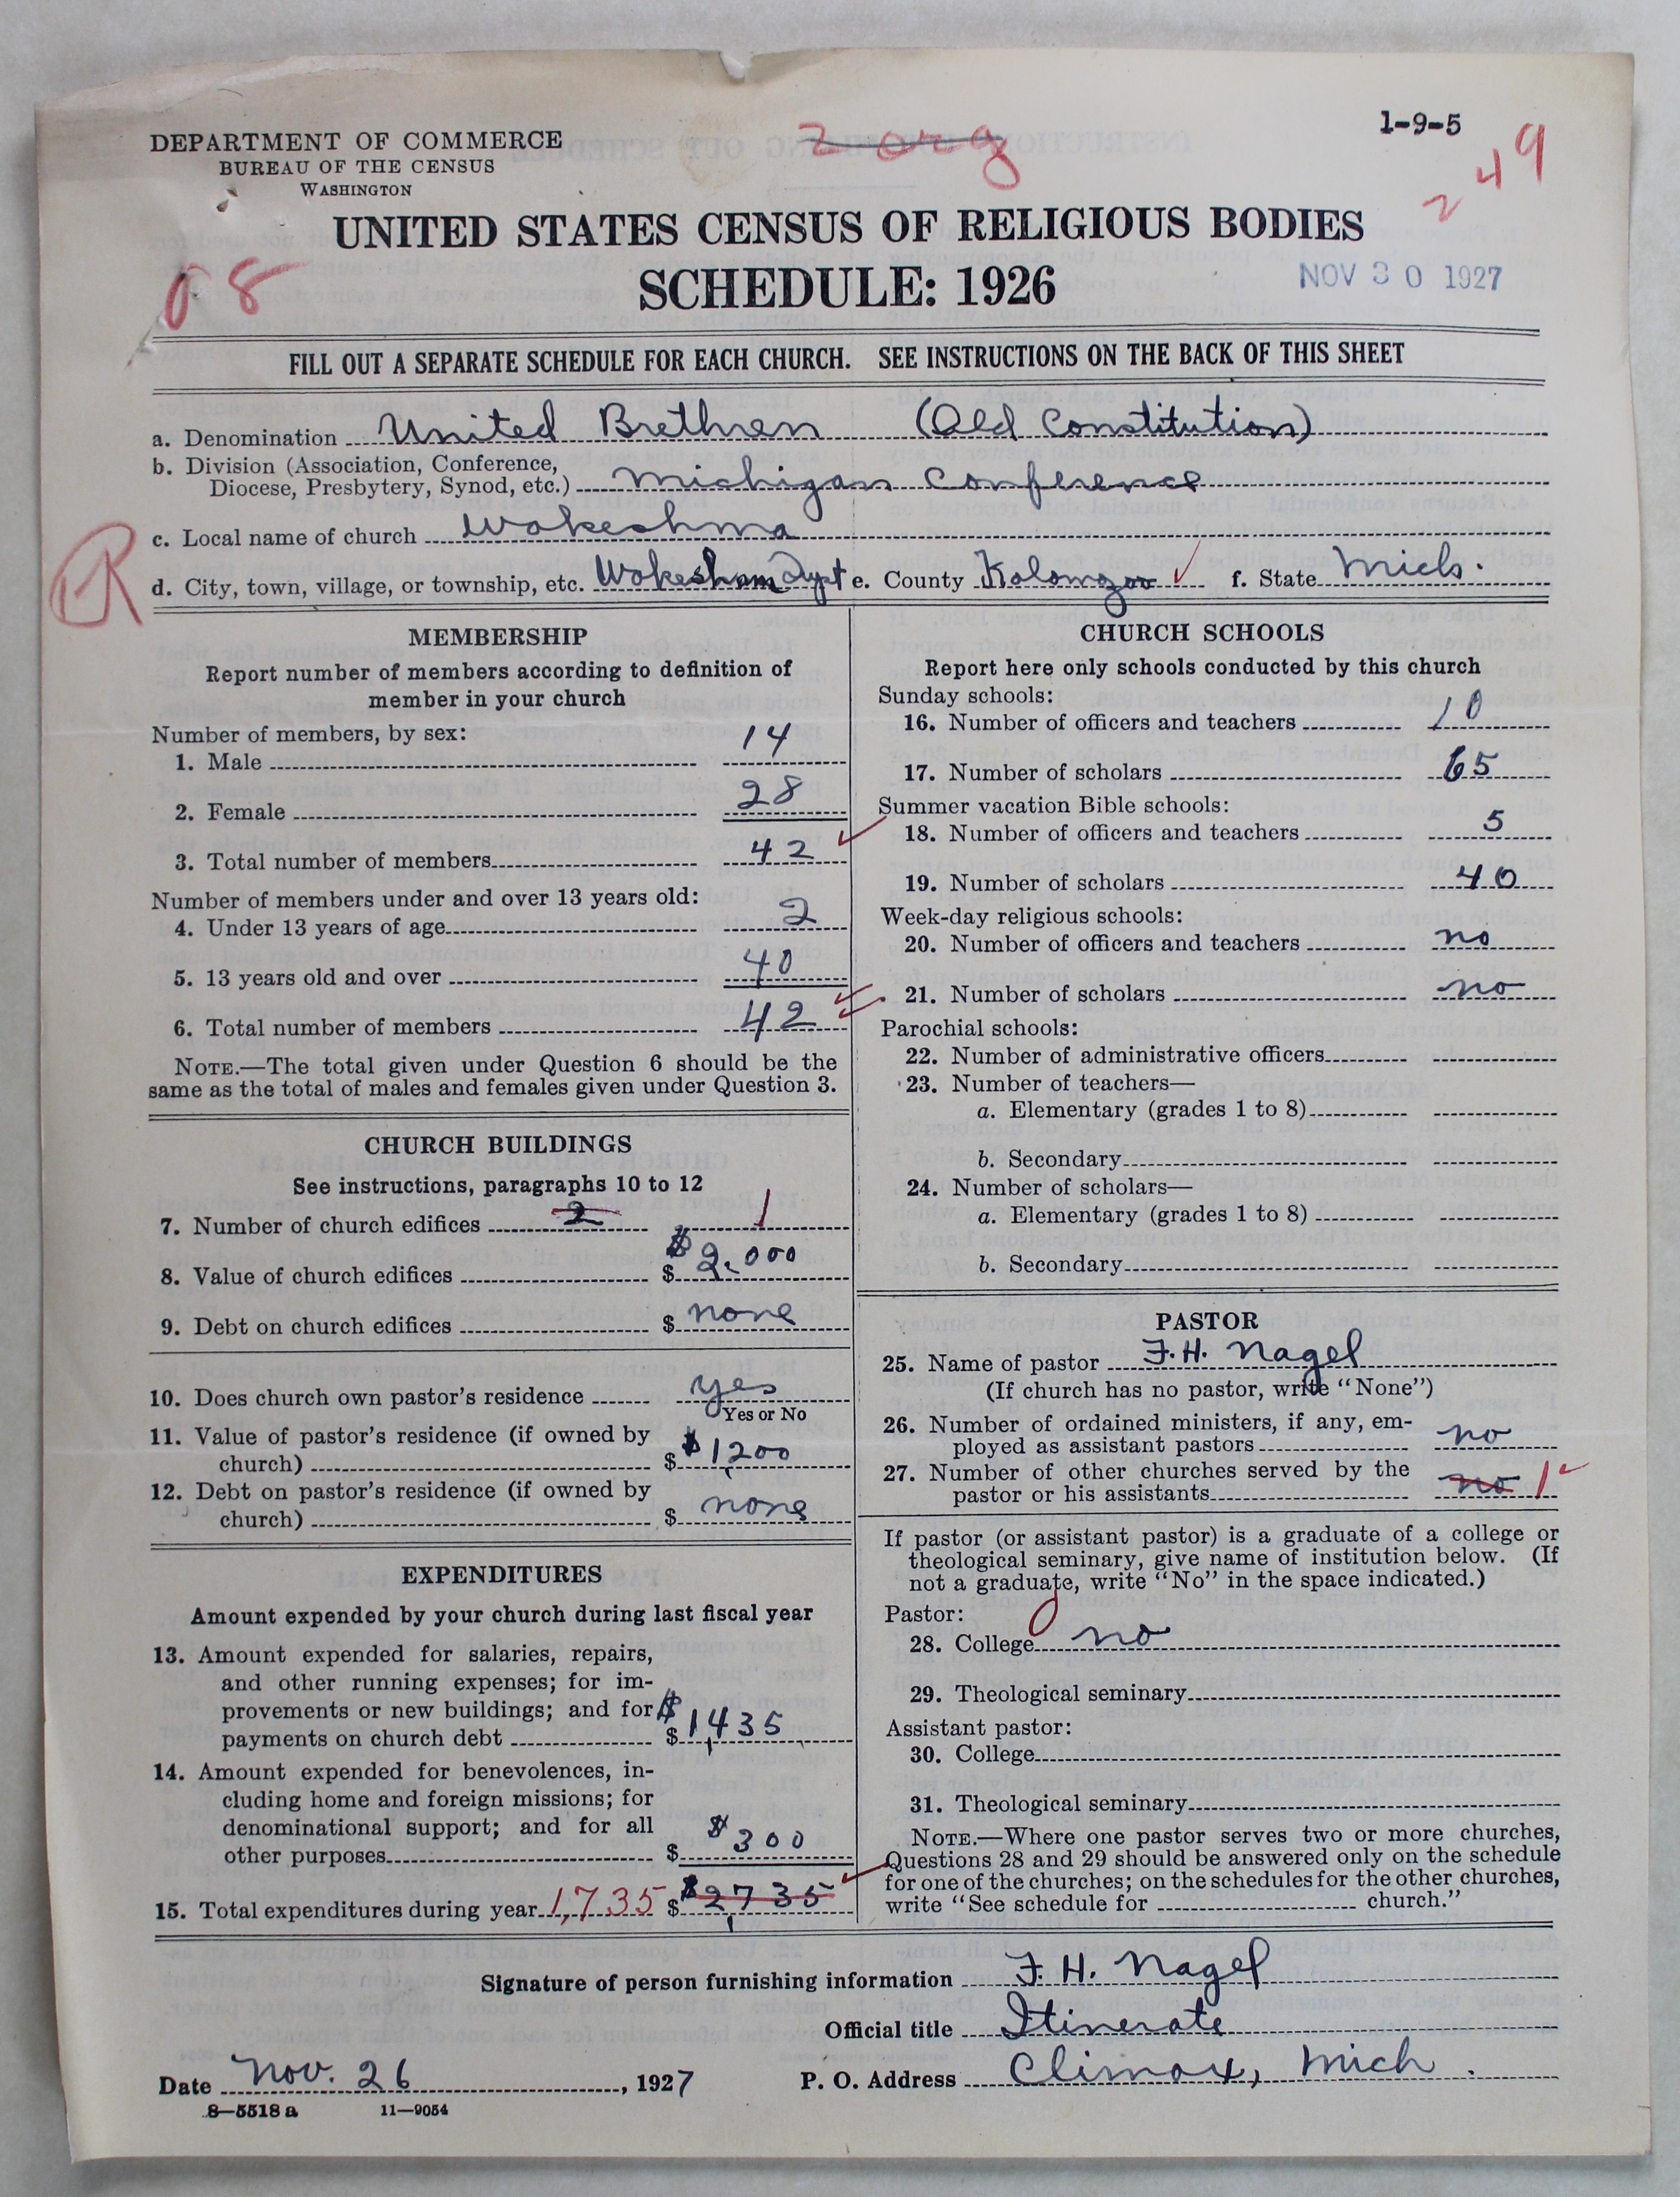 DEPARTMENT OF COMMERCE
BUREAU OF THE CENSUS
WASHINGTON
2 org
1-9-5
249
UNITED STATES CENSUS OF RELIGIOUS BODIES
SCHEDULE: 1926
NOV 30 1927
08
FILL OUT A SEPARATE SCHEDULE FOR EACH CHURCH. SEE INSTRUCTIONS ON THE BACK OF THIS SHEET
a. Denomination United Brethren (Old Constitution)
b. Division (Association, Conference,
Diocese, Presbytery, Synod, etc.) Michigan Conference
c. Local name of church Wakeshma
R
d. City, town, village, or township, etc. Wakesham e. County Kalamzoo f. State Mich.
MEMBERSHIP
Report number of members according to definition of
member in your church
Number of members, by sex:
1. Male 14
2. Female 28
3. Total number of members 42
Number of members under and over 13 years old:
4. Under 13 years of age 2
5. 13 years old and over 40
6. Total number of members 42
NOTE.—The total given under Question 6 should be the
same as the total of males and females given under Question 3.
CHURCH BUILDINGS
See instructions, paragraphs 10 to 12
7. Number of church edifices 2 1
8. Value of church edifices $ $2,000
9. Debt on church edifices $ none
10. Does church own pastor's residence yes
Yes or No
11. Value of pastor's residence (if owned by
church) $ $1,200
12. Debt on pastor's residence (if owned by
church) $ none
EXPENDITURES
Amount expended by your church during last fiscal year
13. Amount expended for salaries, repairs,
and other running expenses; for im-
provements or new buildings; and for
payments on church debt $ $1,435
14. Amount expended for benevolences, in-
cluding home and foreign missions; for
denominational support; and for all
other purposes $ $300
15. Total expenditures during year 1,735 $ $2,735
CHURCH SCHOOLS
Report here only schools conducted by this church
Sunday schools:
16. Number of officers and teachers 10
17. Number of scholars 65
Summer vacation Bible schools:
18. Number of officers and teachers 5
19. Number of scholars 40
Week-day religious schools:
20. Number of officers and teachers no
21. Number of scholars no
Parochial schools:
22. Number of administrative officers
23. Number of teachers—
a. Elementary (grades 1 to 8)
b. Secondary
24. Number of scholars—
a. Elementary (grades 1 to 8)
b. Secondary
PASTOR
25. Name of pastor F. H. Nagel
(If church has no pastor, write "None")
26. Number of ordained ministers, if any, em-
ployed as assistant pastors no
27. Number of other churches served by the
pastor or his assistants no 1
If pastor (or assistant pastor) is a graduate of a college or
theological seminary, give name of institution below. (If
not a graduate, write "No" in the space indicated.)
Pastor:
28. College no
29. Theological seminary
Assistant pastor:
30. College
31. Theological seminary
NOTE.—Where one pastor serves two or more churches,
Questions 28 and 29 should be answered only on the schedule
for one of the churches; on the schedules for the other churches,
write "See schedule for church."
Signature of person furnishing information F. H. Nagel
Official title Itinerate
Date Nov. 26, 1927 P. O. Address Climax, Mich.
8—5518 a 11—9054